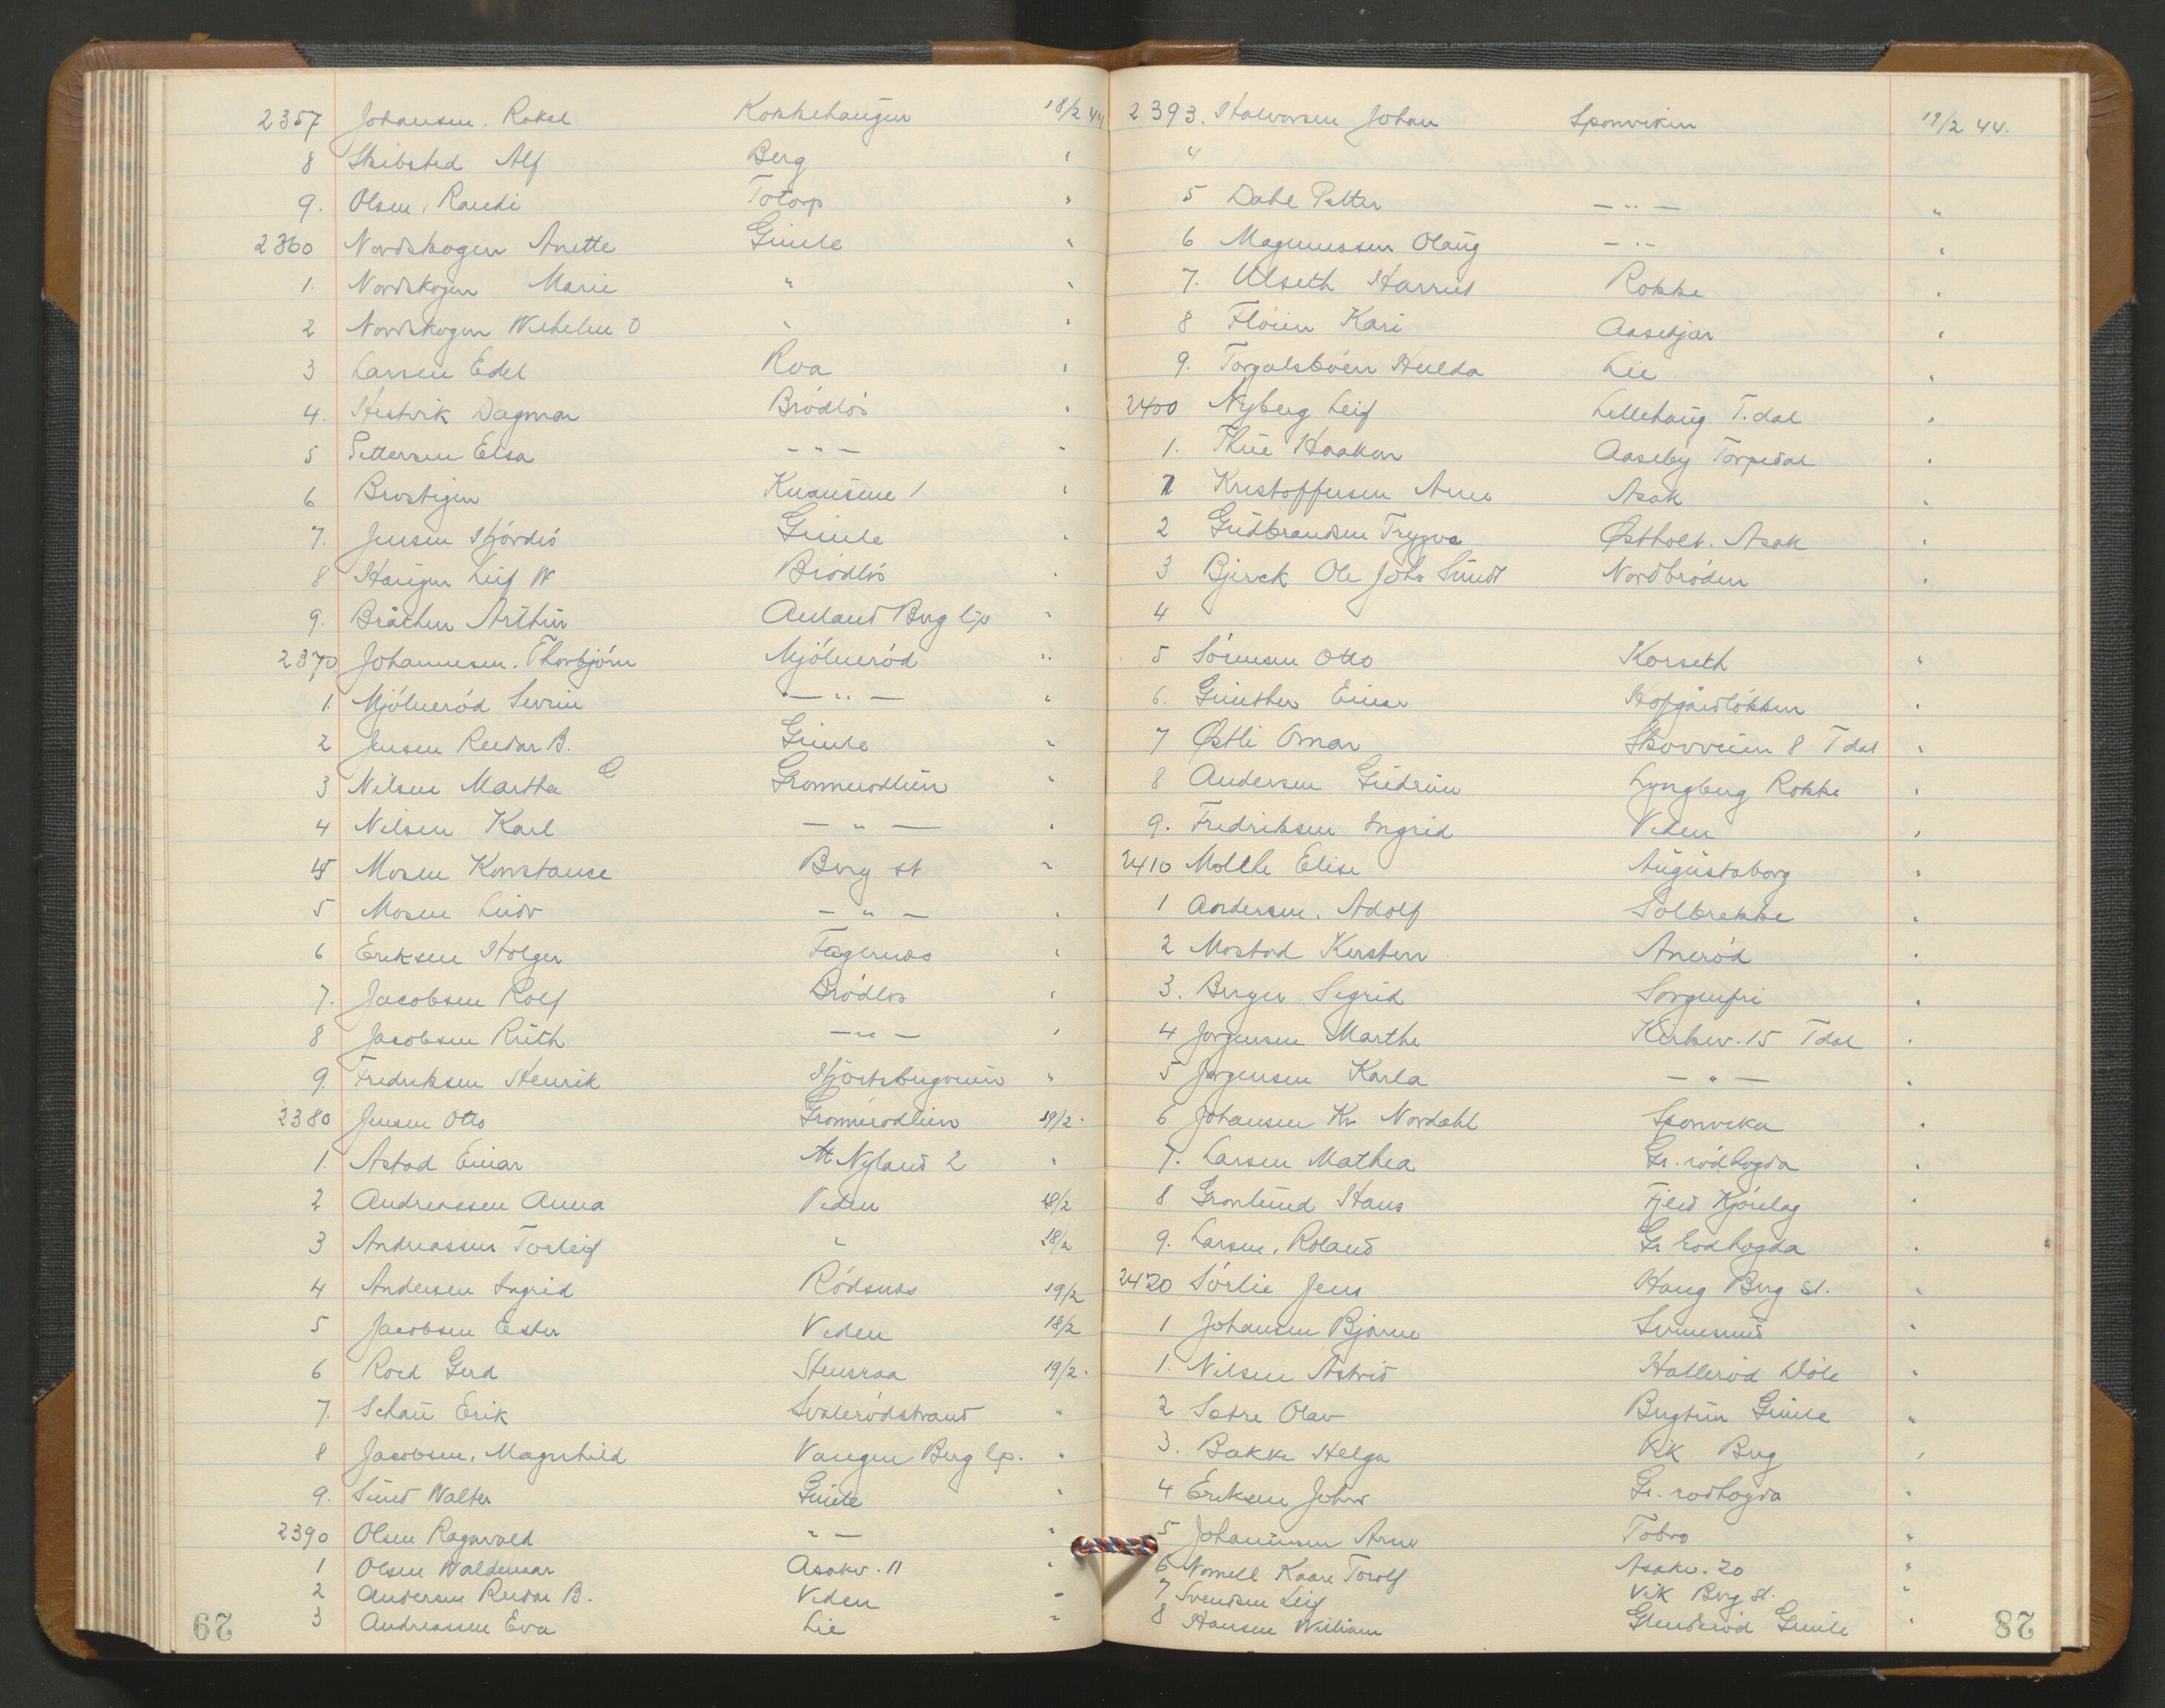 2357 Johansen. Rakel Kokkehaugen 18/2 44
8 Skibsted Alf Berg "
9. Olsen, Randi Totorp "
2360 Nordskogen Anette Gimle "
1. Nordskogen Marie " "
2 Nordskogen Wilhelm O " "
3 Larsen Edel Roa "
4. Hestvik Dagmar Brödlös "
5 Pettersen Elsa — " — "
6 Brostigen 1 "
7. Jensen Hjördis Gimle "
8 Haugen Leif W Brödlös "
9. Bråthen Arthur Berg l/p "
2370 Johannesen. Thorbjörn Mjölneröd "
1. Mjölneröd Sevrin — " — "
2 Jensen Reidar B. Gimle "
3 Nilsen Martha E Grønnerødlien "
4 Nilsen Karl — " — "
45 Mosen Konstanse Berg st "
5 Mosen — " — "
6 Eriksen Holger Fagernes "
7. Jacobsen Rolf Brödlös "
8 Jacobsen Ruth — " — "
9. Fredriksen Henrik Hjortsbergveien "
2380 Jensen Otto Grönnerodlien 19/2.
1. Astad Einar Nyland 2 "
2 Andreassen Anna Veden 18/2
3 Andreassen Torleif " 18/2
4 Andersen Ingrid Rödsnes 19/2
5 Jacobsen Ester Veden 18/2
6 Roed Gerd Stensraa 19/2.
7. Schau Erik Svalerödstrand "
8 Jacobsen, Magnhild Vangen Berg l.p. "
9. Sund Walter Gimle "
2390 Olsen Ragnvald " — "
1 Olsen Waldemar Asakv. 11 "
2 Andersen Reidar B. Veden "
3 Andreassen Eva Lie "
29
2393. Halvorsen Johan Sponviken 19/2 44.
4
5 Dahl Petter — " — "
6 Magnussen Olaug — " — "
7. Ulseth Harriet Rokke "
8 Flöien Kari "
9. Torgalsböen Hulda Lie "
2400 Nyberg Leif Lillehaug T.dal "
1. Thue Haakon Aaseby Torpedal "
1 Kristoffersen Arne Asak "
2 Gudbrandsen Trygve Østholt. Asak "
3 Bjerck Ole Johs Sundt Nordbröden "
4
5 Sörensen Otto Korseth "
6. Günther Einar Hofgårdlökken "
7 Østli Omar Skovveien 8 Tdal "
8 Andersen Gudrun Lyngberg Rokke "
9. Fredriksen Ingrid Veden "
2410 Molthe Elise Augustaborg "
1 Andersen. Adolf Solbrekke "
2 Mostad Kersten Aneröd "
3. Berger Sigrid Sorgenfri "
4 Jørgensen Marthe Kirkev. 15 Tdal "
5 Jørgensen Karla — " — "
6 Johansen Kr. Nordahl Sponvika "
7. Larsen Mathea Gr. rödhogda "
8 Gronlund Hans Fjeld Kjönlag "
9. Larsen, Roland Gr. rodhogda "
2420 Sörlie Jens Haug Berg st. "
1 Johansen Bjarne Svinesund "
1. Nilsen Astrid Halleröd Döle "
2 Sætre Olav Bergtun Gimle "
3. Bakke Helga Vik Berg "
4 Eriksen John Gr. rodhogda "
5 Johannesen Arne Tobro "
6 Nomell Kaare Torolf Asakv. 20 "
7 Svendsen Leif Vik Berg st. "
8 Hansen William Glenderöd Gimle "
28